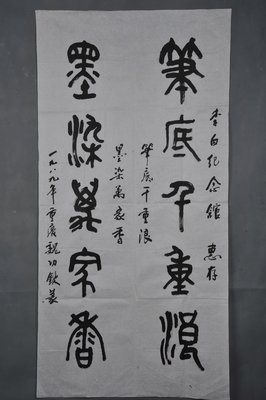 李白纪念馆 惠存
筆底千重浪
笔底千重浪
墨染萬家香
墨染万家香
一九八九年重庆魏功钦篆